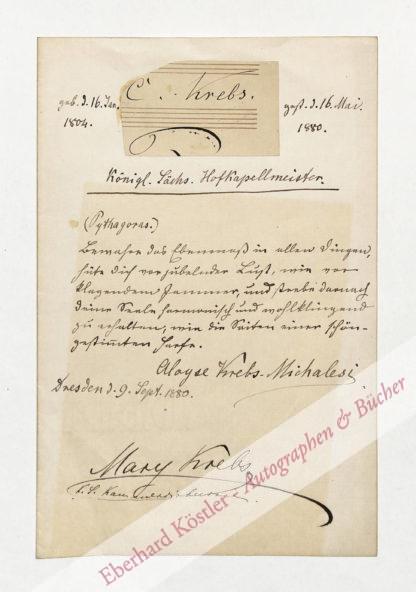 C. Krebs.
geb. d. 16. Jan.
1804.
gest. d. 16. Mai.
1880.
Königl. Sächs. Hofkapellmeister.
(Pythagoras.)
Bewahre das Ebenmaß in allen Dingen,
hüte dich vor jubelnder Lust, wie vor
klagendem Jammer, und strebe darnach
deine Seele harmonisch und wohlklingend
zu erhalten, wie die Saiten einer schön-
gestimmten Harfe.
Aloyse Krebs-Michalesi
Dresden d. 9. Sept. 1880.
Mary Krebs
Eberhard Köstler - Autographen & Bücher